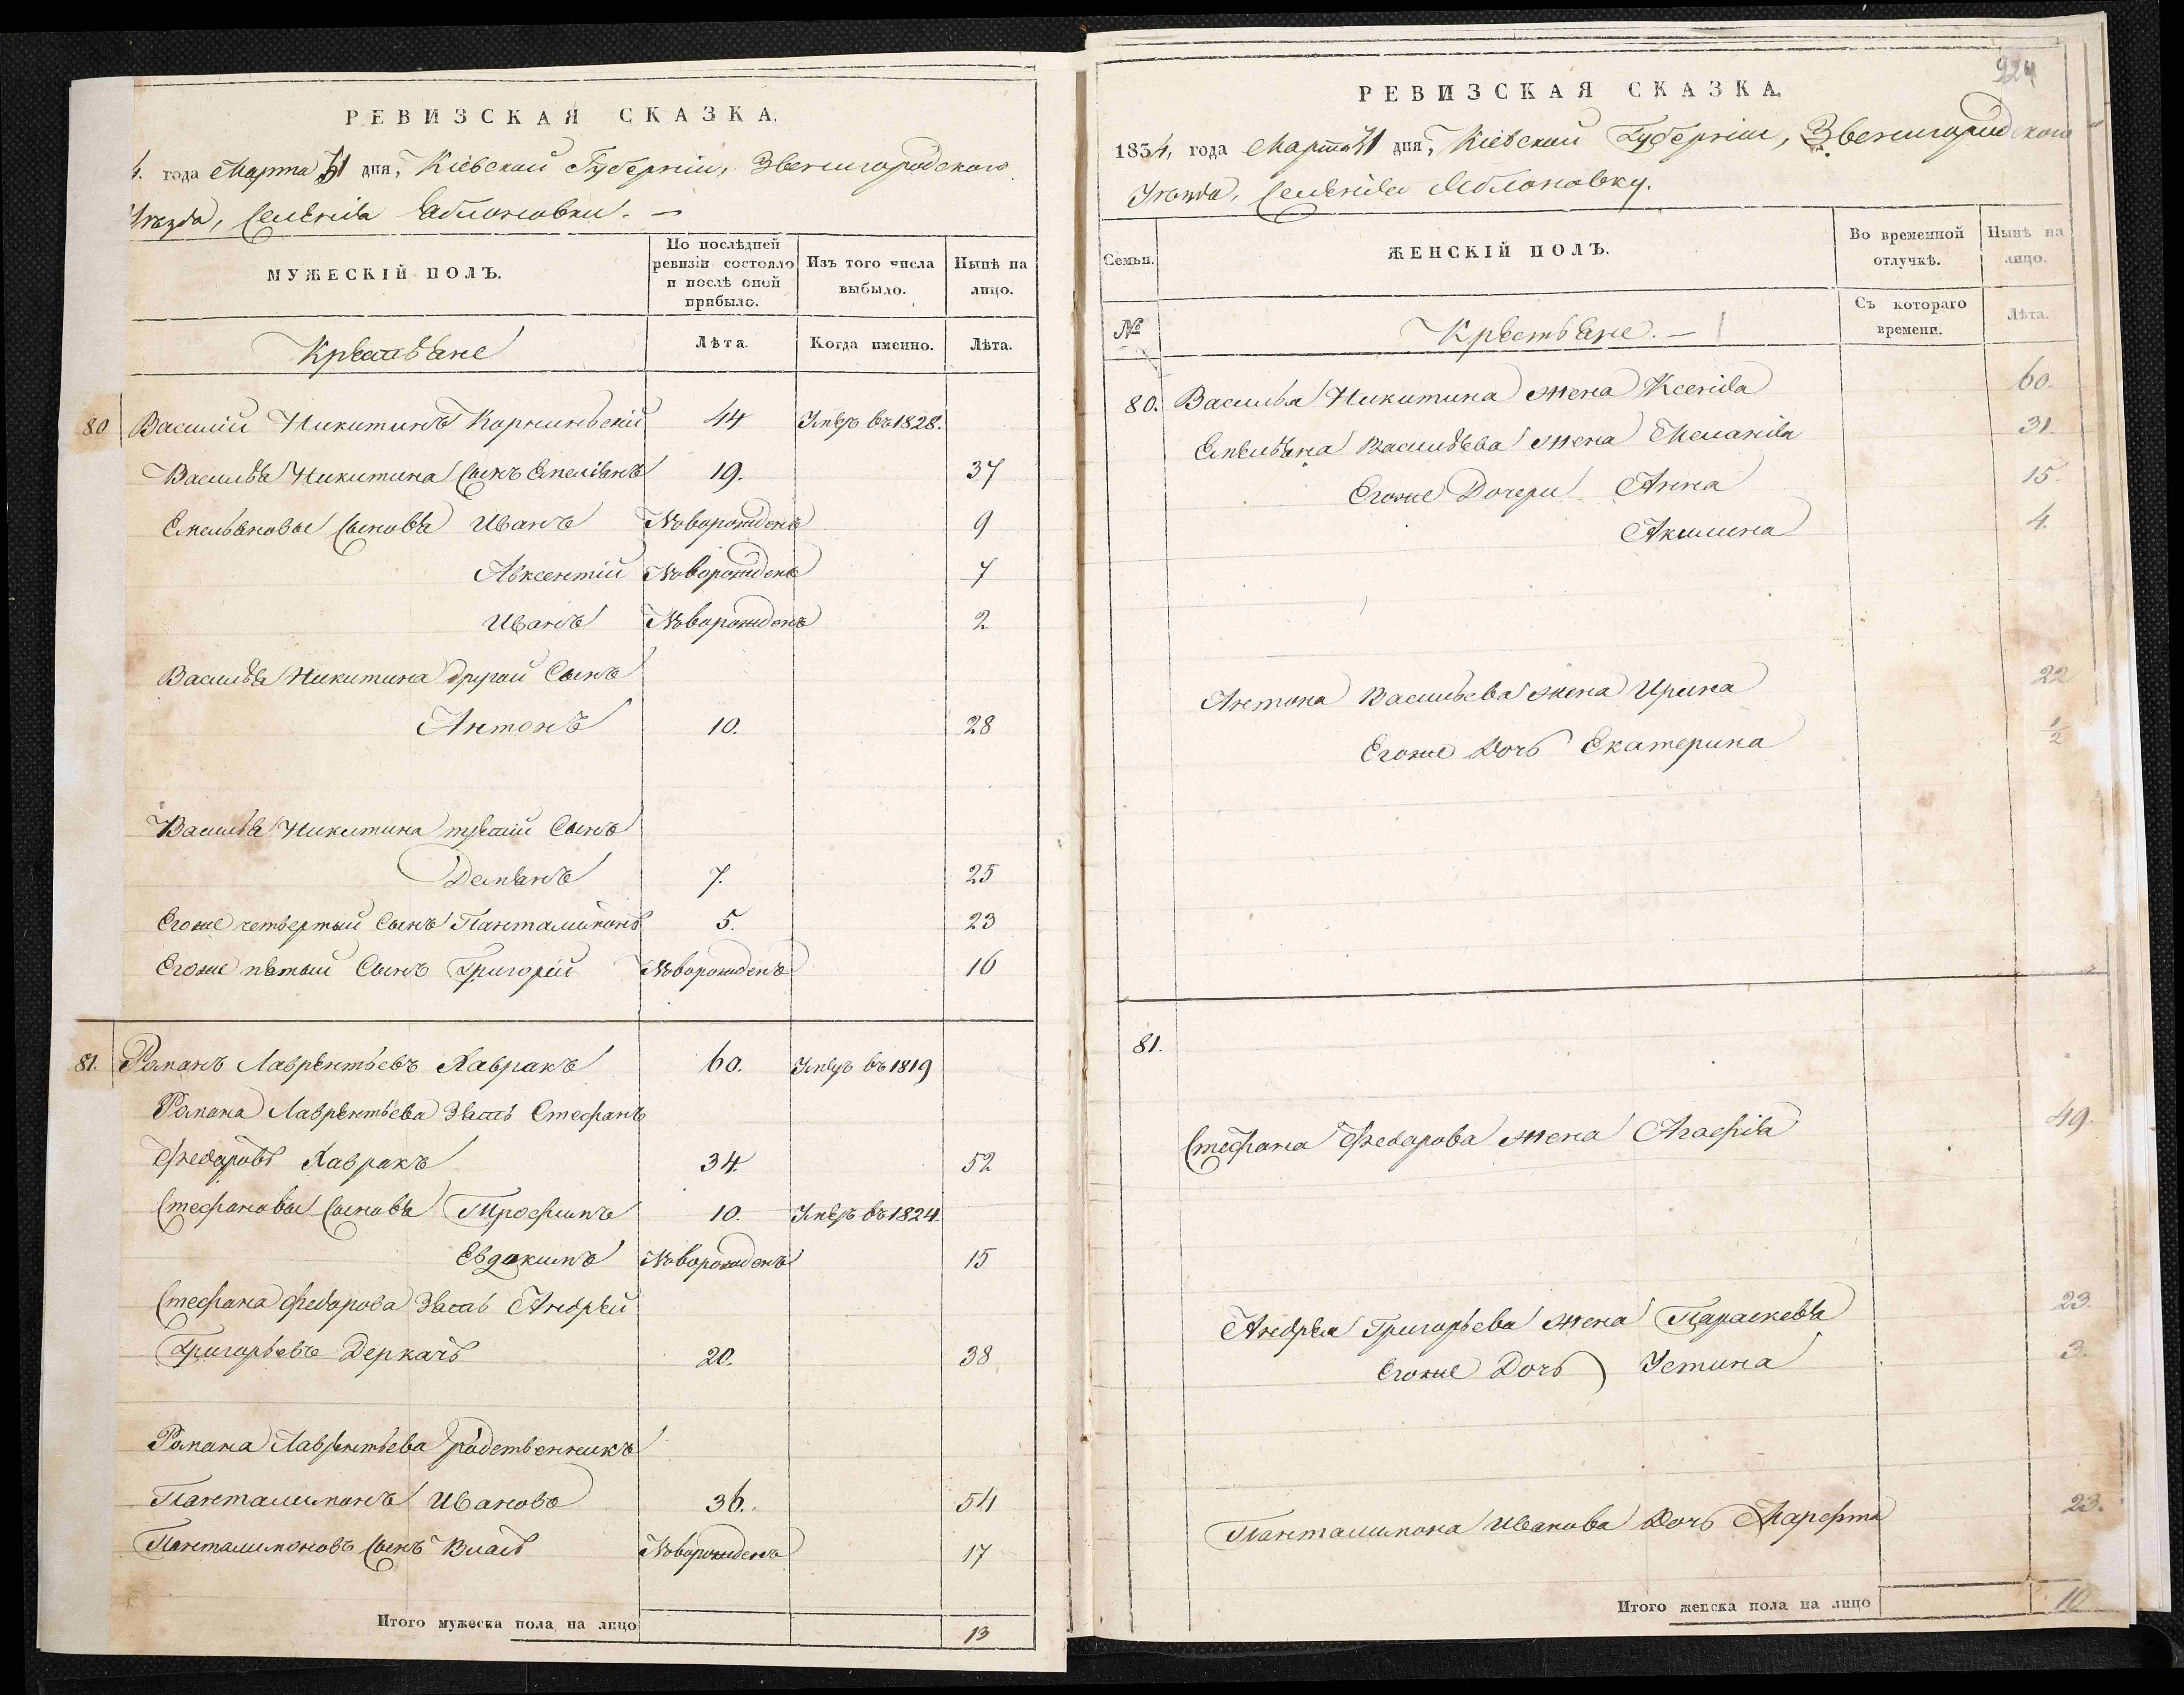 РЕВИЗСКАЯ СКАЗКА.
4. года Марта 31 дня, Кіевской Губерніи, Звенигородского
Уѣзда, Селенія Яблоновки. —
МУЖЕСКІЙ ПОЛЪ.
По послѣдней ревизіи состояло и послѣ оной прибыло.
Изъ того числа выбыло.
Нынѣ на лицо.
Крестьяне
Лѣта.
Когда именно.
Лѣта.
80 Василій Никитинъ 44 Умеръ въ 1828.
Василья Никитина Сынъ Емеліянъ 19. 37
Емельяновы Сыновья Иванъ Новорожденъ 9
Авксентій Новорожденъ 7
Иванъ Новорожденъ 2
Василья Никитина другой Сынъ
Антонъ 10. 28
Василья Никитина третій Сынъ
Демьянъ 7. 25
Егоже четвертый Сынъ Панталимонъ 5. 23
Егоже пятый Сынъ Григорій Новорожденъ 16
81. Романъ Лаврентьевъ Хавракъ 60. Умеръ въ 1819
Романа Лаврентьева Зять Стефанъ
Федоровъ Хавракъ 34. 52
Стефановы Сыновья Трофимъ 10. Умеръ въ 1824.
Евдокимъ Новорожденъ 15
Стефана Федорова Зять Андрей
Григорьевъ Деркачъ 20. 38
Романа Лаврентьева родственникъ
Панталимонъ Ивановъ 36. 54
Панталимоновъ Сынъ Власъ Новорожденъ 17
Итого мужеска пола на лицо 13
924
РЕВИЗСКАЯ СКАЗКА.
1834, года Марта 31 дня, Кіевской Губерніи, Звенигородского
Уѣзда, Селенія Яблоновку.
Семьи.
ЖЕНСКІЙ ПОЛЪ.
Во временной отлучкѣ.
Нынѣ на лицо.
№
Крестьяне. —
Съ котораго времени.
Лѣта.
80. Василья Никитина жена Ксенія 60.
Емельяна Васильева жена Меланія 31.
Егоже Дочери Анна 15.
Акилина 4.
Антона Васильева жена Ирина 22
Егоже Дочь Екатерина 1/2
81.
Стефана Федорова жена Агафія 49.
Андрея Григорьева жена Параскевія 23.
Егоже Дочь Устина 3.
Панталимона Иванова Дочь Марфта 23.
Итого женска пола на лицо 10